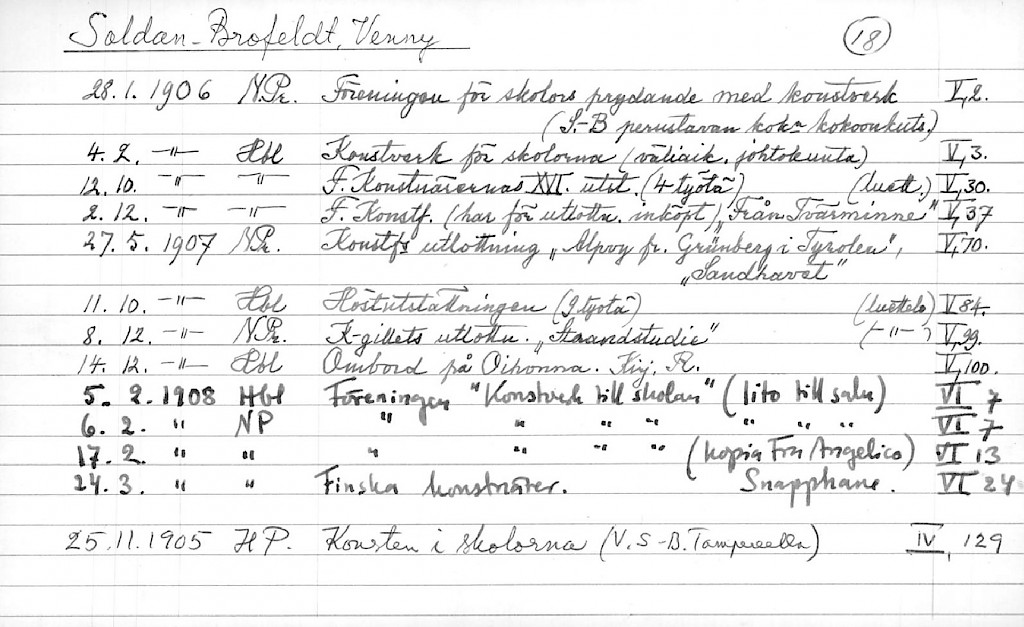 Soldan-Brofeldt, Venny (18)
28.1.1906 N.Pr. Föreningen för skolors prydande med konstverk V,2.
(S.-B perustavan kok:n kokoonkuts.)
4. 2. -"- Hbl Konstverk för skolorna (väliaik. johtokunta) V,3.
12. 10. -"- -"- F. Konstnärernas XVI. utst. (4 työtä) (luett.) V,30.
2. 12. -"- -"- F. Konstf. (har för utlottn. inköpt) „Från Tvärminne" V,37
27. 5. 1907 N.Pr. Konstf:s utlottning „Alpvy fr. Grünberg i Tyrolen", V,70.
„Sandhavet"
11. 10. -"- Hbl Höstutställningen (9 työtä) (luettelo) V 84.
8. 12. -"- N.Pr. K-gillets utlottn. „Strandstudie" (-"-) V,99.
14. 12. -"- Hbl Ombord på Oihonna. Kirj. R. V,100.
5. 2. 1908 Hbl Föreningen "Konstverk till skolan" (lito till salu) VI 7
6. 2. " NP " " " " " " " VI 7
17. 2. " " " " " " (kopia Fra Angelico) VI 13
24. 3. " " Finska konstnärer. Snapphane. VI 24
25.11.1905 H P. Konsten i skolorna (V. S-B. Tampereella) IV, 129